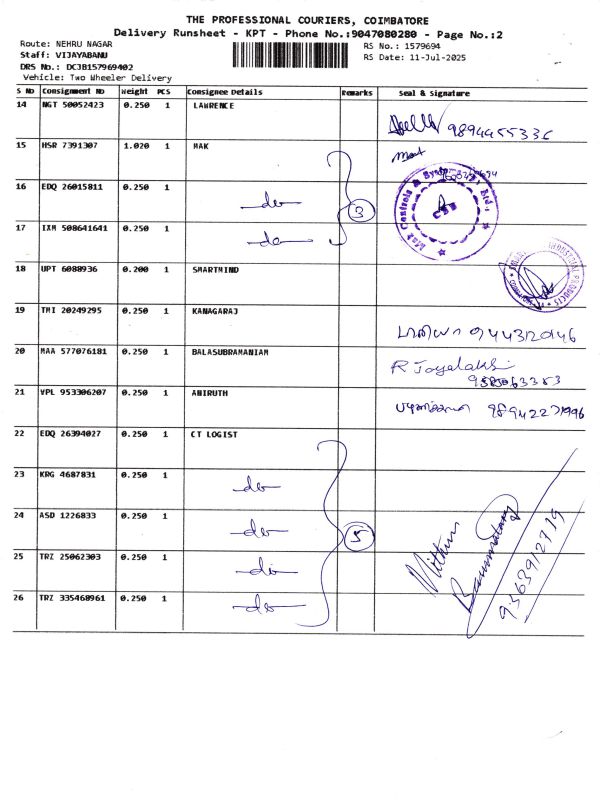 THE PROFESSIONAL COURIERS, COIMBATORE
Delivery Runsheet - KPT - Phone No.:9047080280 - Page No.:2
Route: NEHRU NAGAR
Staff: VIJAYABANU
DRS No.: DCJB157969402
Vehicle: Two Wheeler Delivery
RS No.: 1579694
RS Date: 11-Jul-2025
S No Consignment No Weight PCS Consignee Details Remarks Seal & Signature
14 NGT 50052423 0.250 1 LAWRENCE
15 HSR 7391307 1.020 1 MAK
16 EDQ 26015811 0.250 1 -do- 3
17 IXM 508641641 0.250 1 -do-
18 UPT 6088936 0.200 1 SMARTMIND
19 TMI 20249295 0.250 1 KANAGARAJ
20 MAA 577076181 0.250 1 BALASUBRAMANIAM
21 VPL 953306207 0.250 1 ANIRUTH 98942271996
22 EDQ 26394027 0.250 1 CT LOGIST
23 KRG 4687831 0.250 1 -do-
24 ASD 1226833 0.250 1 -do- 5
25 TRZ 25062303 0.250 1 -do-
26 TRZ 335468961 0.250 1 -do-
Mithun